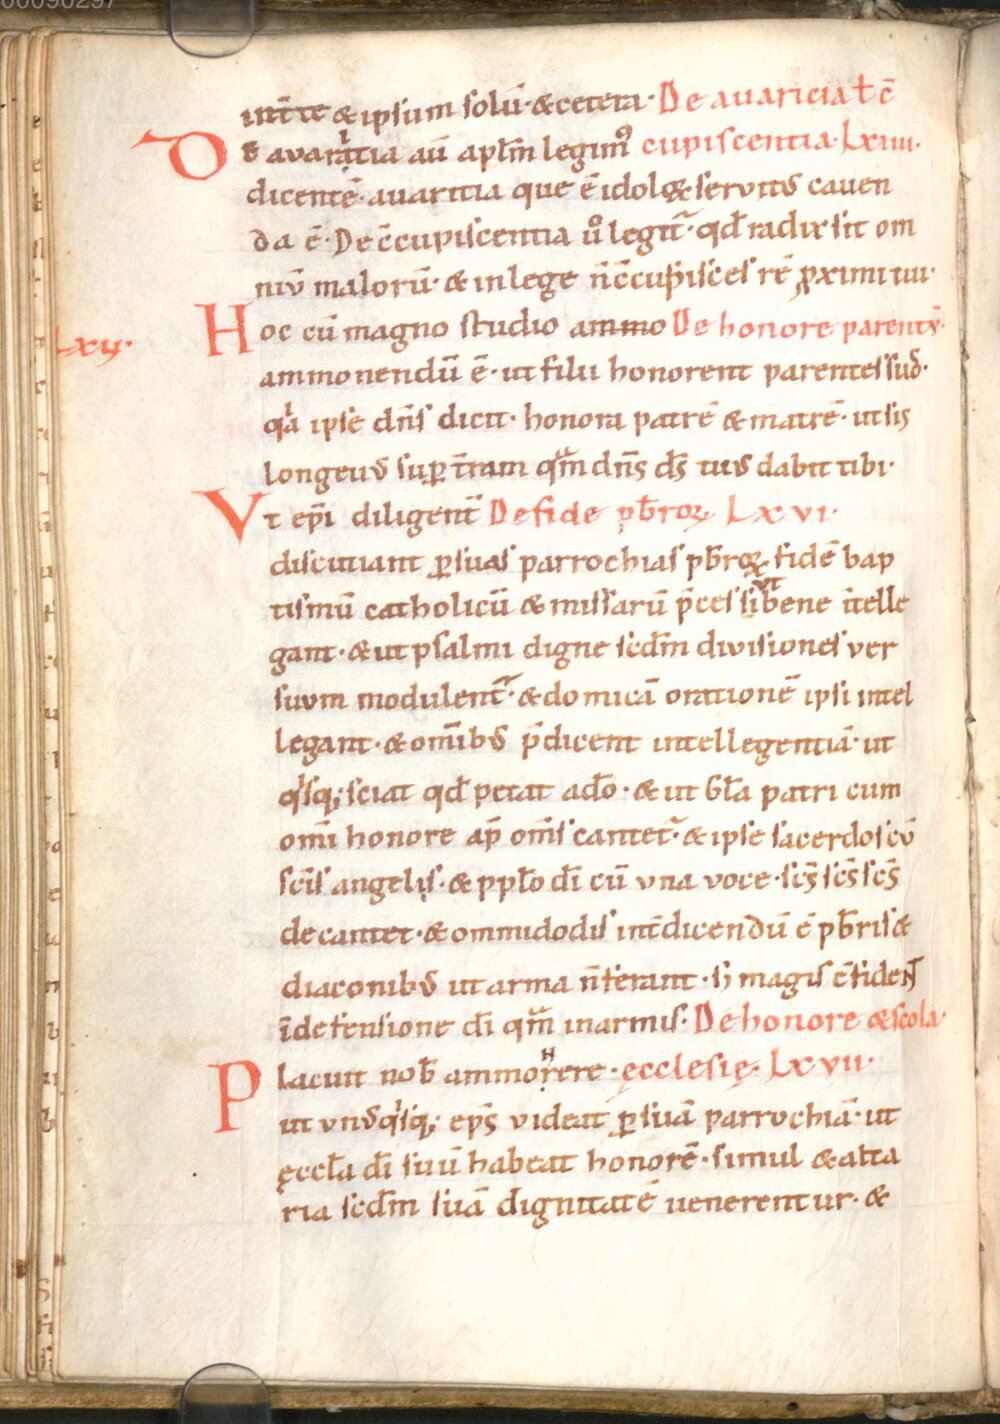 00090297
int̄te & ipsum solū· &cetera· De avaricia ł c̄
De avaritia aū apłm legim⁹ cupiscentia· Lxiiii·
dicentē· avaritia que ē idolꝝ servitus caven
da ē· De c̄cupiscentia ů legit᷑· qđ radix sit om
niū malorū· & in lege n̄ c̄cupisces rē ꝓximi tui·
Lxv· Hoc cū magno studio ammo De honore parentū·
ammonendū ē· ut filii honorent parentes suos·
qa ipse dn̄s dicit· honora patrē & matrē· ut sis
longeuus sup̱ t̄ram qm̄ dn̄s ds̄ tuus dabit tibi·
Ut ep̄i diligent᷑ De fide pb̄roꝝ Lxvi·
discutiant ꝑ suas parrochias pb̄roꝝ· fidē bap
tismū catholicū & missarū p̄ces si ut bene ītelle
gant· & ut psalmi digne scđm divisiones ver
suum modulent᷑· & dominicā orationē ipsi intel
legant· & omīb; p̄dicent intellegentiā· ut
qisq; sciat qđ petat a do· & ut gła patri cum
omī honore ap̄ om̄s cantet᷑· & ipse sacerdos cū
scīs angelis· & pplo dī cū una voce· scs̄ scs̄ scs̄
decantet· & ommidodis int̄dicendū ē pb̄ris &
diaconibus ut arma n̄ ferant· s; magis c̄fidens
ī defensione dī qm̄ in armis· De honore & scola·
Placuit nob̄ ammonere· ęcclesię· Lxvii·
ut unusqisq; eps̄ videat ꝑ suā parrochiā· ut
ęccła dī suū habeat honorē· simul & alta
ria scđm suā dignitatē venerentur· &